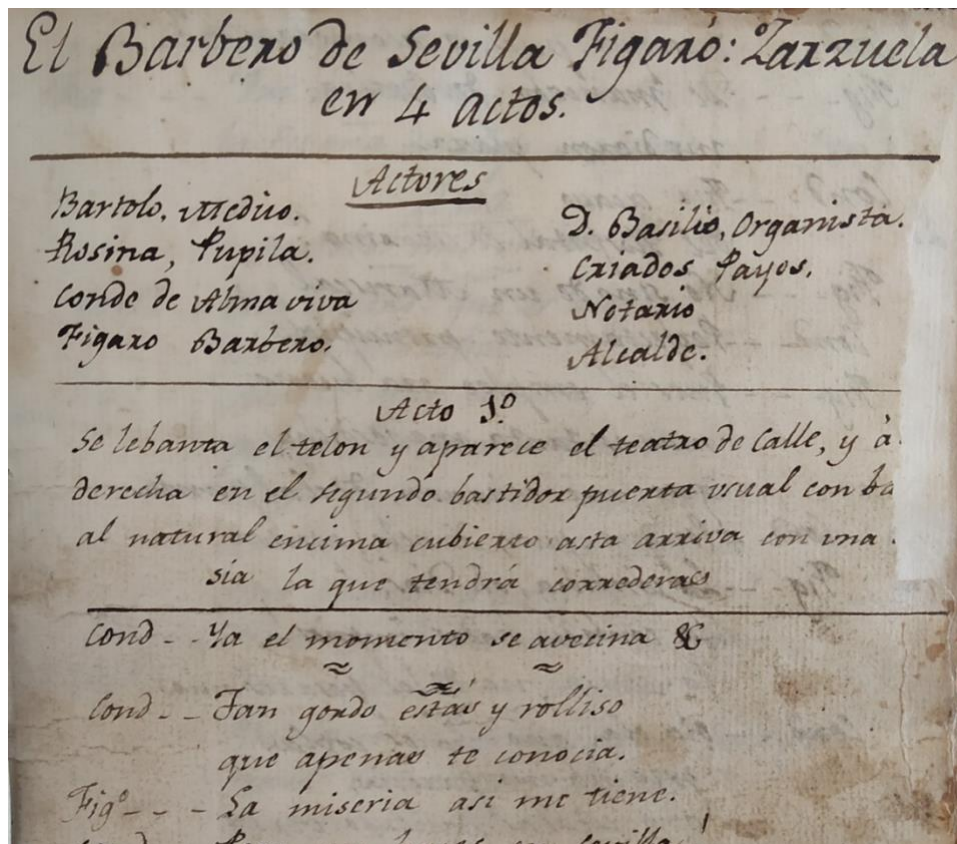 El Barbero de Sevilla Figaró: Zarzuela
en 4 Actos.
Actores
Bartolo, Medico.
Rosina, Pupila.
Conde de Alma viva
Figaro Barbero.
D. Basilio, Organista.
Criados Payos.
Notario
Alcalde.
Acto 1º
Se lebanta el telon y aparece el teatro de Calle, y à
derecha en el segundo bastidor puerta usual con ba
al natural encima cubierto asta arriva con una
sia la que tendrá correderas
Cond - - Ya el momento se avecina &
Cond - - Tan gordo estás y rolliso
que apenas te conocia.
Figº - - - La miseria asi me tiene.